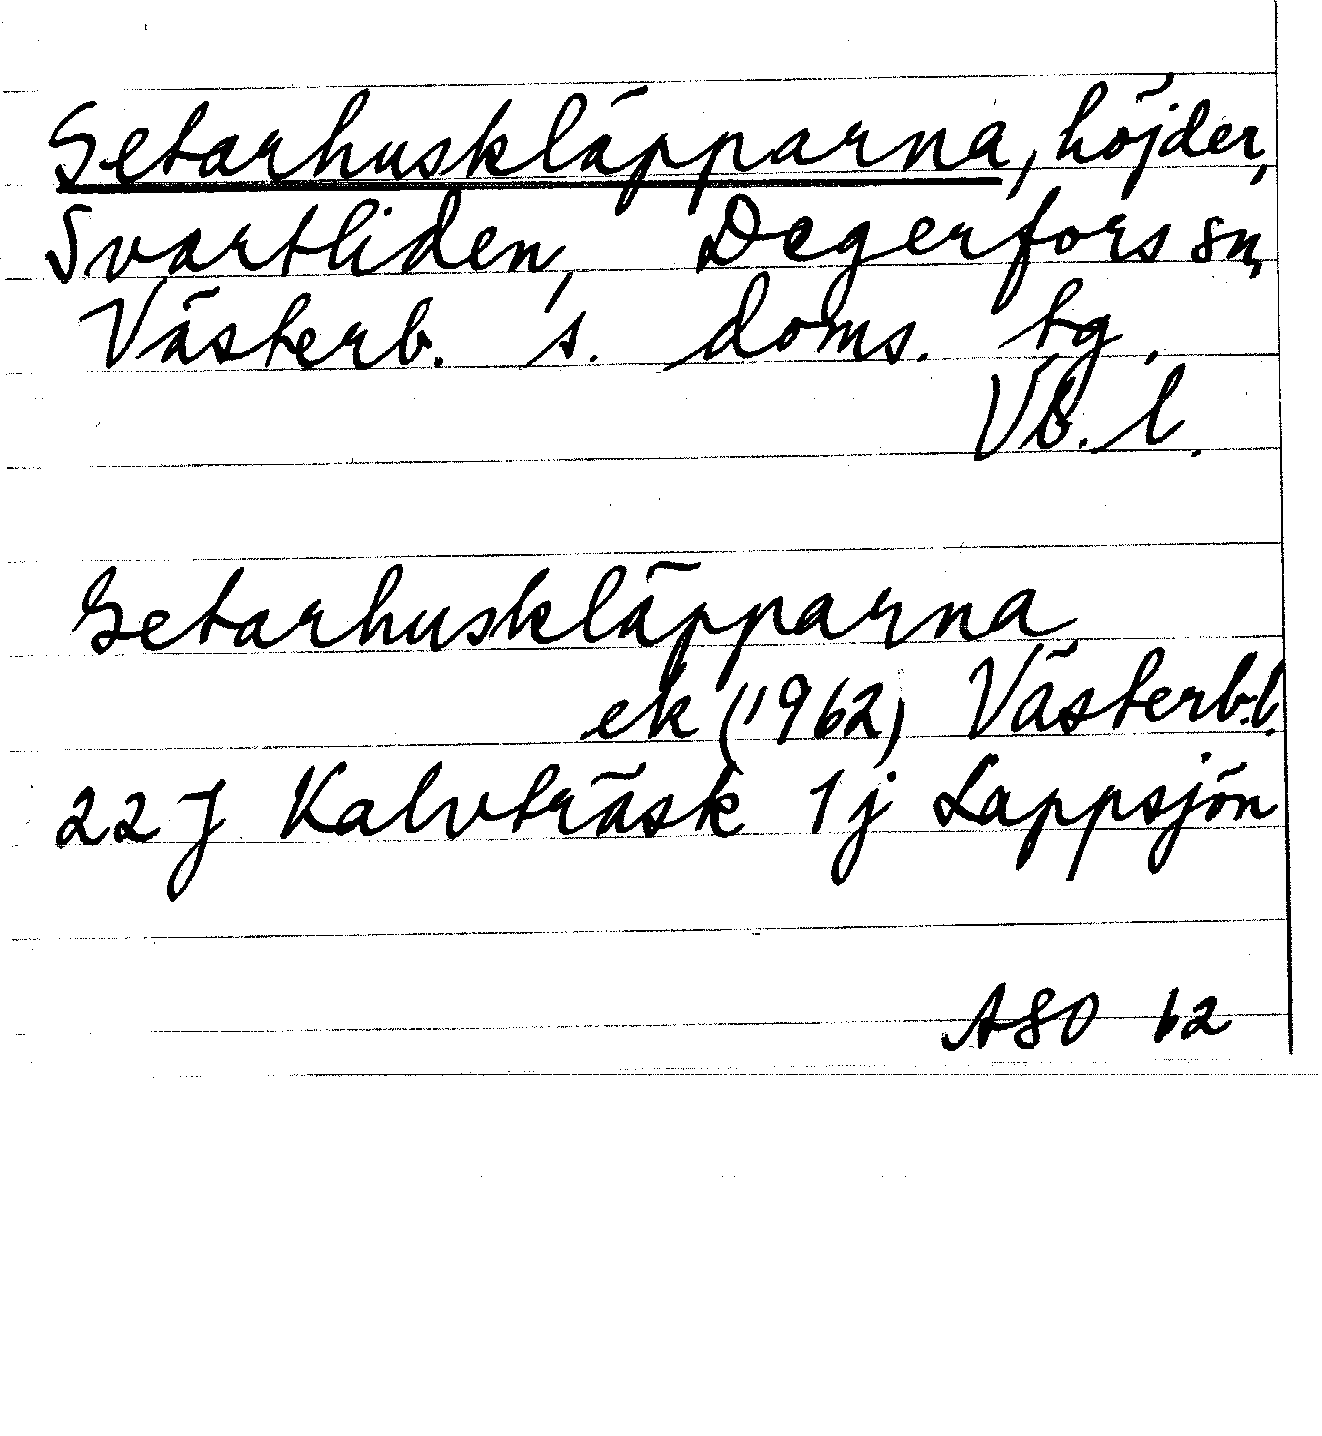 Getarhuskläpparna, höjder,
Svartliden, Degerfors sn,
Västerb. s. doms. tg.
Vb. l.
Getarhuskläpparna
ek (1962) Västerb.l.
22 J Kalvträsk 1 j Lappsjön
ASO 62